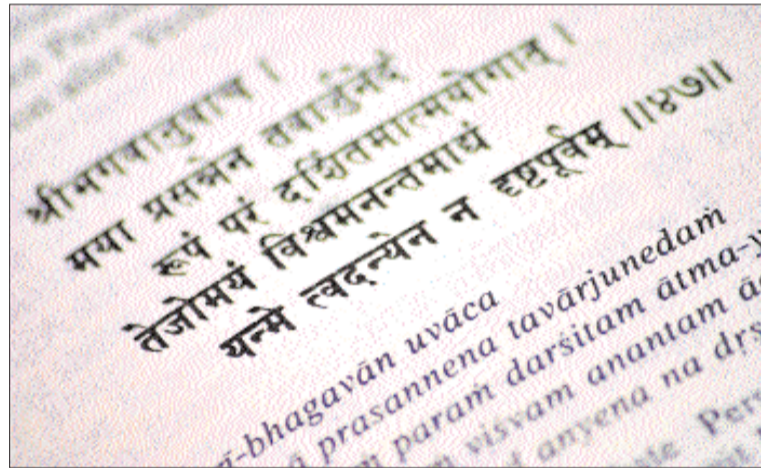 श्रीभगवानुवाच ।
मया प्रसन्नेन तवार्जुनेदं
रूपं परं दर्शितमात्मयोगात् ।
तेजोमयं विश्वमनन्तमाद्यं
यन्मे त्वदन्येन न दृष्टपूर्वम् ॥४७॥
ī-bhagavān uvāca
ā prasannena tavārjunedaṁ
m paraṁ darśitam ātma-y
viśvam anantam ā
anyena na dṛṣ